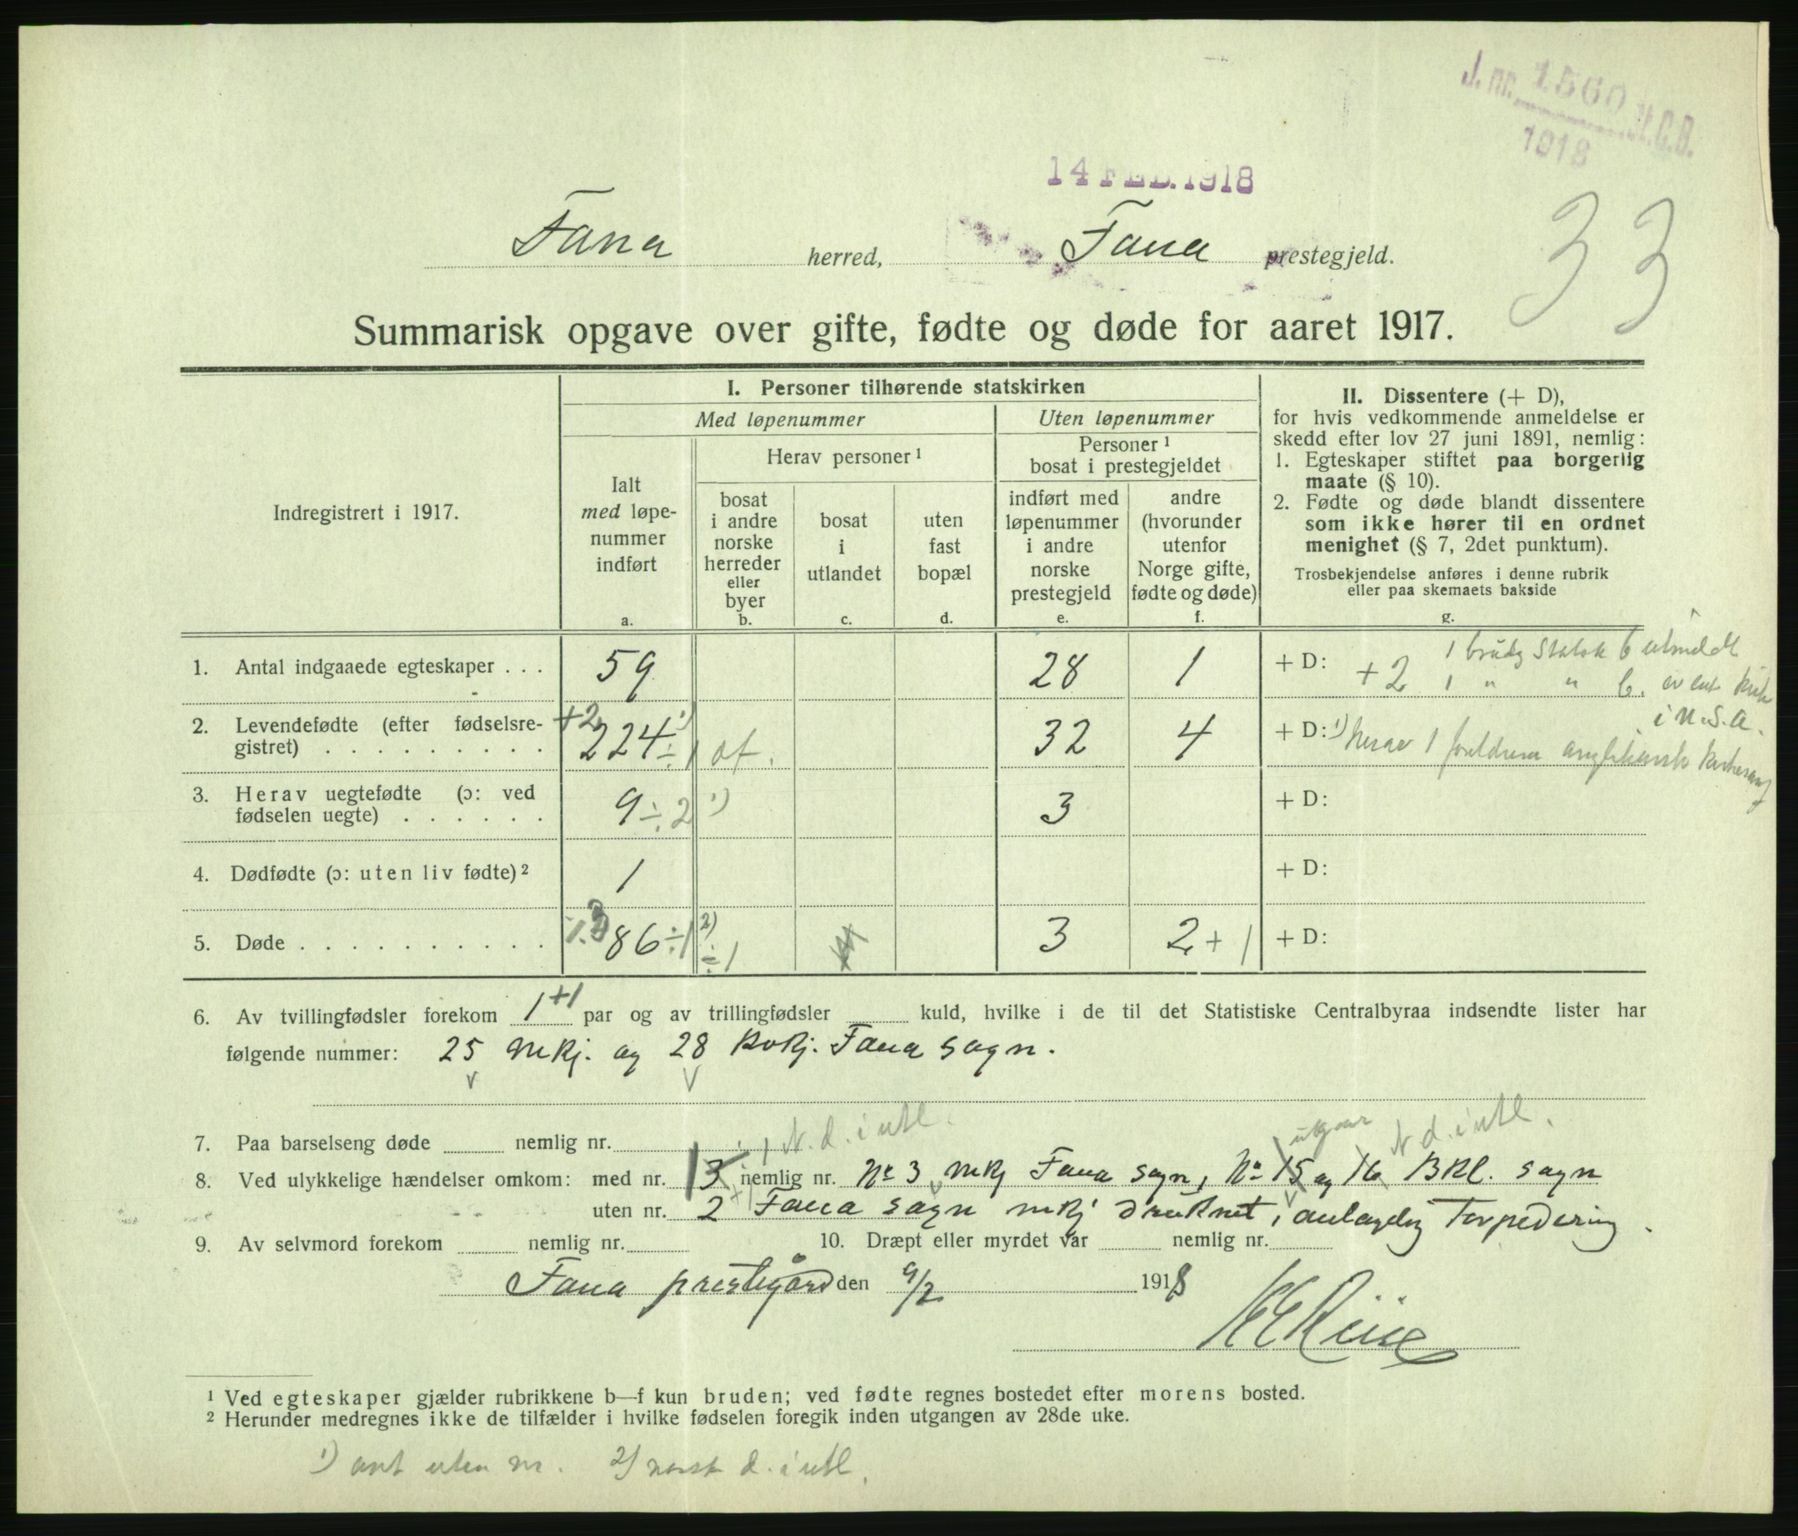 J. nr. 1560 S.C.B.
1918
14 FEB. 1918
33
Fana herred, Fana prestegjeld.
Summarisk opgave over gifte, fødte og døde for aaret 1917.
Indregistrert i 1917.
I. Personer tilhørende statskirken
Med løpenummer
Uten løpenummer
Ialt
med løpe-
nummer
indført
a.
Herav personer ¹
bosat
i andre
norske
herreder
eller
byer
b.
bosat
i
utlandet
c.
uten
fast
bopæl
d.
Personer ¹
bosat i prestegjeldet
indført med
løpenummer
i andre
norske
prestegjeld
e.
andre
(hvorunder
utenfor
Norge gifte,
fødte og døde)
f.
II. Dissentere (+ D),
for hvis vedkommende anmeldelse er
skedd efter lov 27 juni 1891, nemlig:
1. Egteskaper stiftet paa borgerlig
maate (§ 10).
2. Fødte og døde blandt dissentere
som ikke hører til en ordnet
menighet (§ 7, 2det punktum).
Trosbekjendelse anføres i denne rubrik
eller paa skemaets bakside
g.
1. Antal indgaaede egteskaper . . . 59 28 1 + D: +2 1 brudg statsk b utmeldt
1 " " b. av en kirke
i U.S.A.
2. Levendefødte (efter fødselsre-
gistret) . . . . . . . . . +2 224 ÷1 ¹) 32 4 + D: ¹) herav 1 foreldrene anglikansk
3. Herav uegtefødte (ɔ: ved
fødselen uegte) . . . . . . 9 ÷2 ¹) 3 + D:
4. Dødfødte (ɔ: uten liv fødte) ² 1 + D:
5. Døde . . . . . . . . . . 86 ÷1 ²) ÷1 3 2 + 1 + D:
6. Av tvillingfødsler forekom 1 +1 par og av trillingfødsler kuld, hvilke i de til det Statistiske Centralbyraa indsendte lister har
følgende nummer: 25 Mkj. og 28 Kvkj. Fana sogn.
7. Paa barselseng døde nemlig nr.
÷ 1 N. d. i utl. utgaar N d. i utl.
8. Ved ulykkelige hændelser omkom: med nr. 1 3 nemlig nr. No 3 Mkj Fana sogn, No 15 og 16 Bkl. sogn
uten nr. 2 +1 Fana sogn mkj druknet, antagelig Torpedering.
9. Av selvmord forekom nemlig nr. 10. Dræpt eller myrdet var nemlig nr.
Fana prestegård den 9/2 1918
¹ Ved egteskaper gjælder rubrikkene b—f kun bruden; ved fødte regnes bostedet efter morens bosted.
² Herunder medregnes ikke de tilfælder i hvilke fødselen foregik inden utgangen av 28de uke.
¹) ant uten nr. 2) norsk d. i utl.